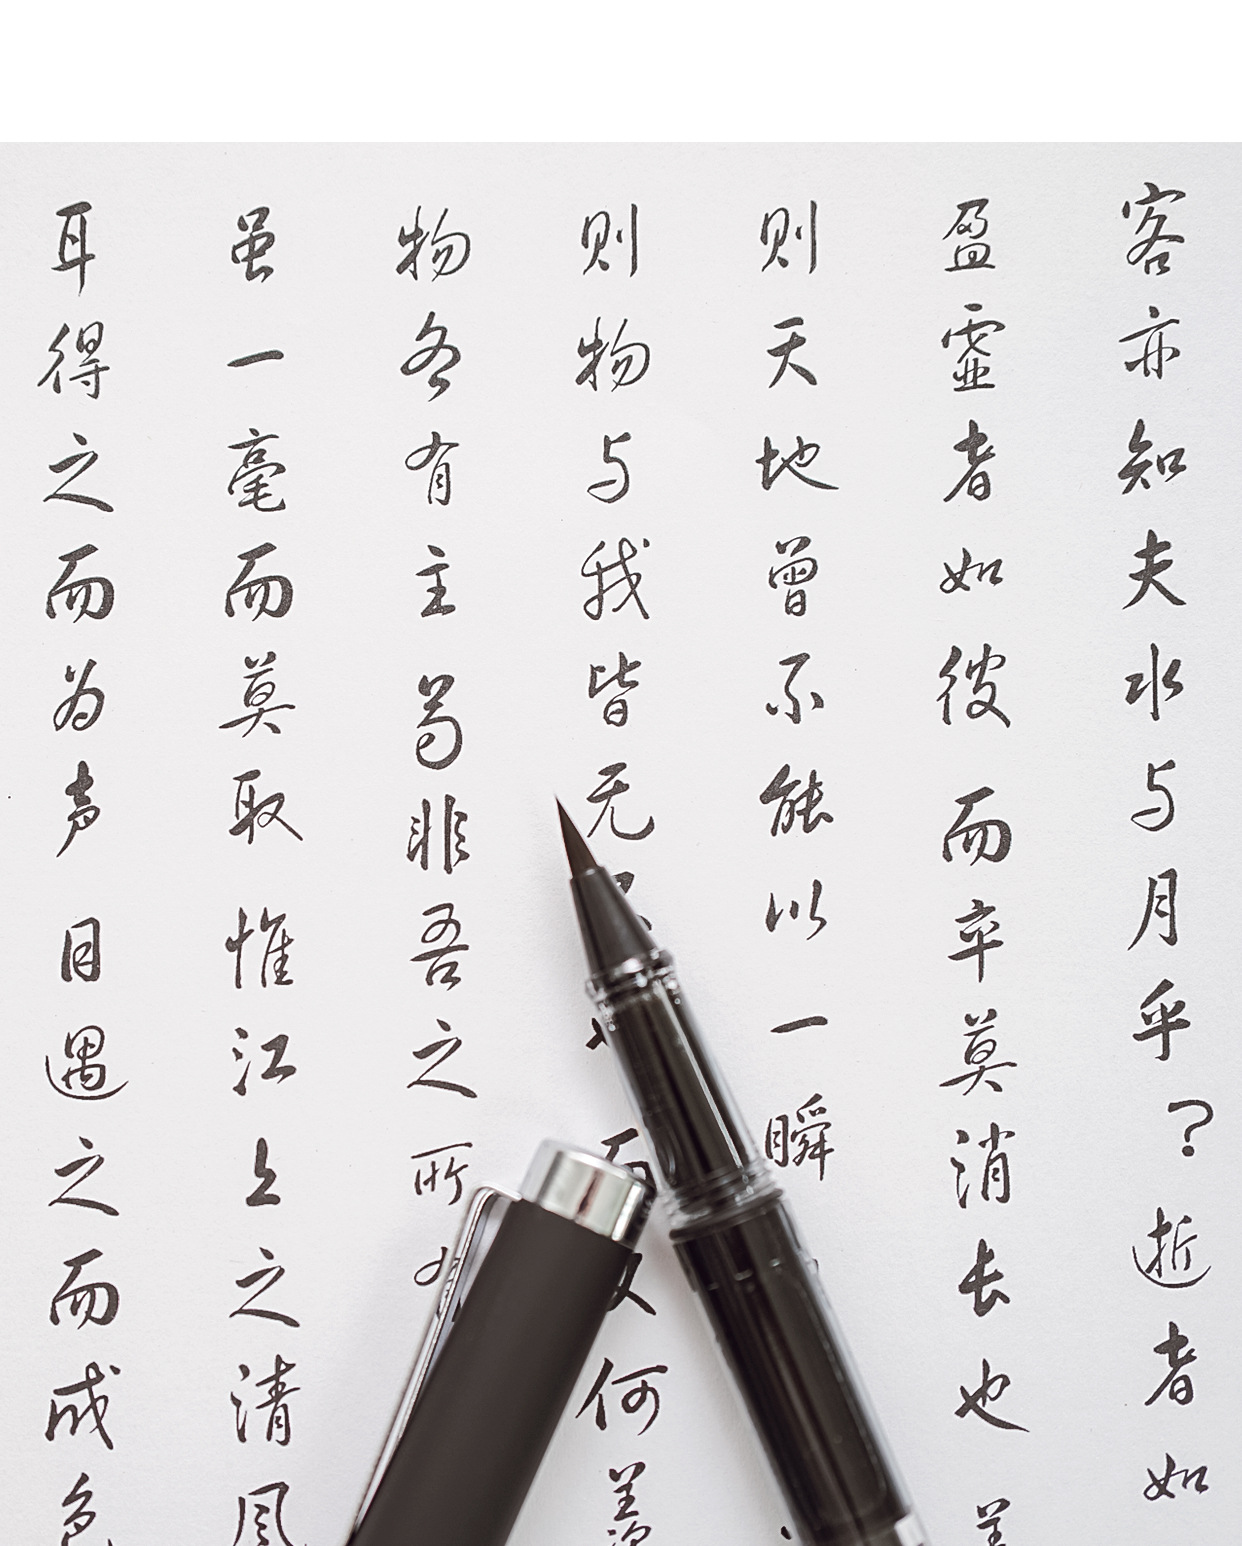 客亦知夫水与月乎?逝者如
盈虚者如彼而卒莫消长也
则天地曾不能以一瞬
则物与我皆无而又何羡
物各有主苟非吾之所
虽一毫而莫取惟江上之清风
耳得之而为声目遇之而成色